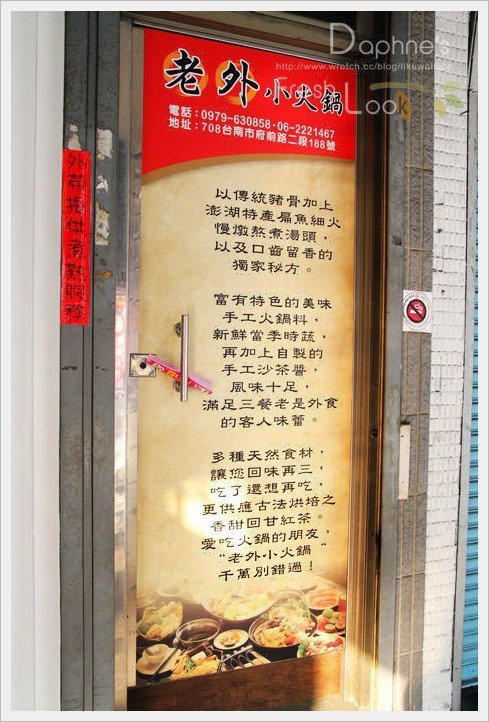 Daphne's
http://www.wretch.cc/blog/likewater
Fresh
Look
老外小火鍋
電話：0979-630858·06-2221467
地址：708台南市府前路二段188號
外帶提供煮熟服務
以傳統豬骨加上
澎湖特產扁魚細火
慢燉熬煮湯頭，
以及口齒留香的
獨家秘方。
富有特色的美味
手工火鍋料，
新鮮當季時蔬，
再加上自製的
手工沙茶醬，
風味十足，
滿足三餐老是外食
的客人味蕾。
多種天然食材，
讓您回味再三，
吃了還想再吃，
更供應古法烘培之
香甜回甘紅茶。
愛吃火鍋的朋友，
"老外小火鍋"
千萬別錯過！